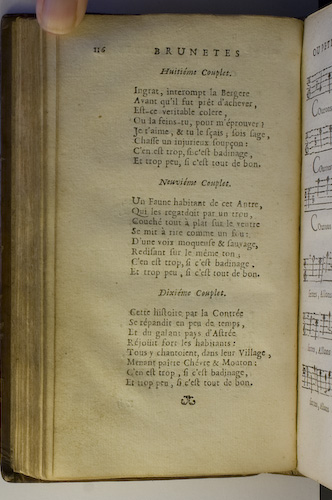 116 BRUNETES
Huitiéme Couplet.
Ingrat, interompt la Bergere
Avant qu'il fut prêt d'achever,
Est-ce veritable colere,
Ou la feins-tu, pour m'éprouver?
Je t'aime, & tu le sçais; sois sage,
Chasse un injurieux soupçon:
C'en est trop, si c'est badinage,
Et trop peu, si c'est tout de bon.
Neuviéme Couplet.
Un Faune habitant de cet Antre,
Qui les regardoit par un trou,
Couché tout à plat sur le ventre
Se mit à rire comme un fou:
D'une voix moqueuse & sauvage,
Redisant sur le même ton;
C'en est trop, si c'est badinage.
Et trop peu, si c'est tout de bon.
Dixiéme Couplet.
Cette histoire par la Contrée
Se répandit en peu de temps,
Et du galant pays d'Astrée
Réjouit fort les habitants:
Tous y chantoient, dans leur Village,
Menant paître Chévre & Mouton:
C'en est trop, si c'est badinage,
Et trop peu, si c'est tout de bon.